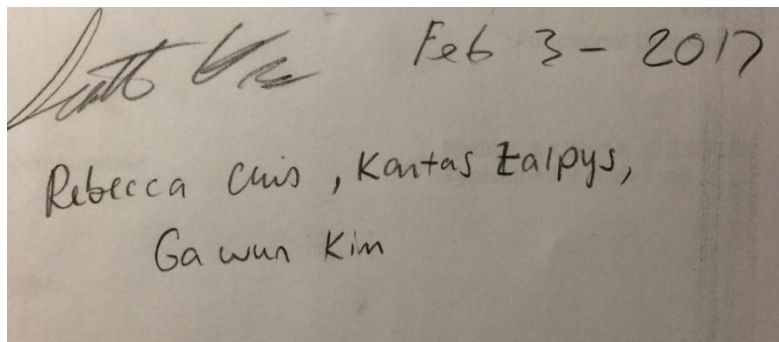 Feb 3 - 2017
Rebecca , Kantas Žalpys,
Ga wun Kim